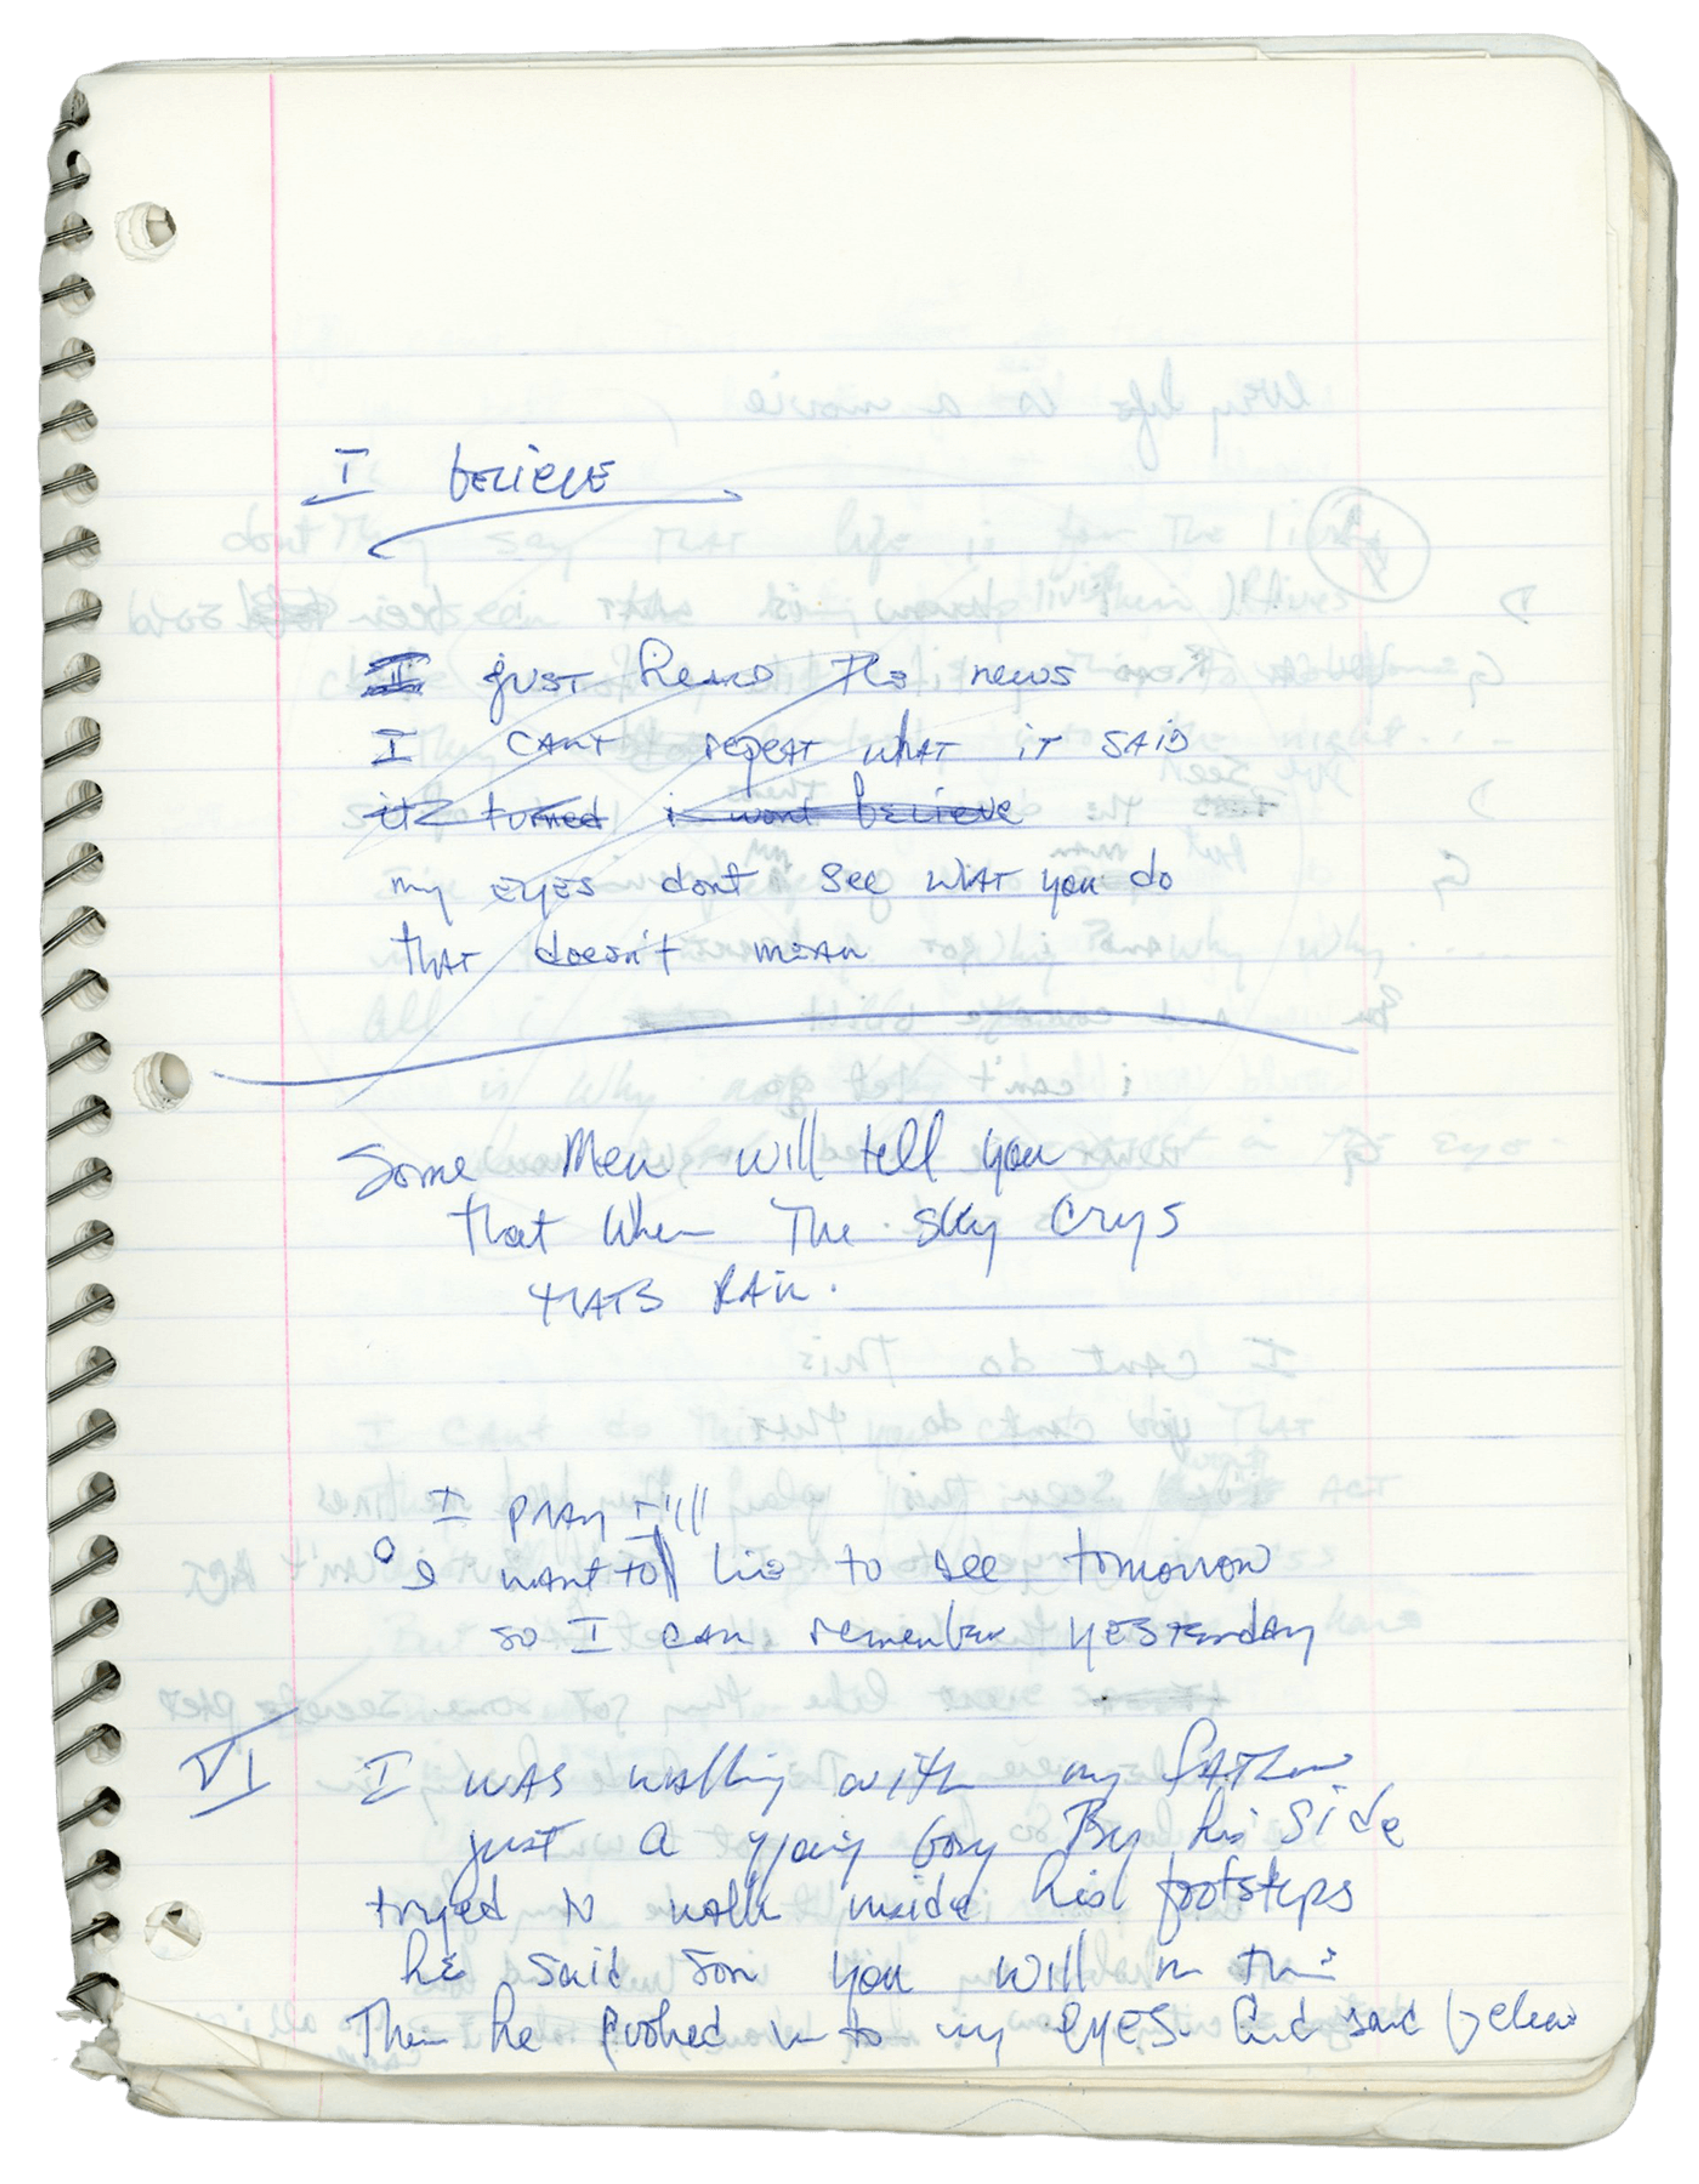 I believe
I just heard the news
I cant repeat what it said
it turned i wont believe
my eyes dont see what you do
that doesn't mean
Some Men will tell you
that when The sky crys
thats Rain.
I pray I'll
I want to live to see tomorrow
so I can remember yesterday
VI I was walking with my father
just a young boy By his side
tryed to walk inside his footsteps
he said son you will in time
Then he looked in to my eyes and said